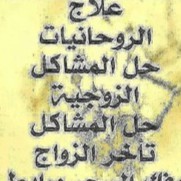 علاج
الروحانيات
حل المشاكل
الزوجية
حل المشاكل
تأخر الزواج